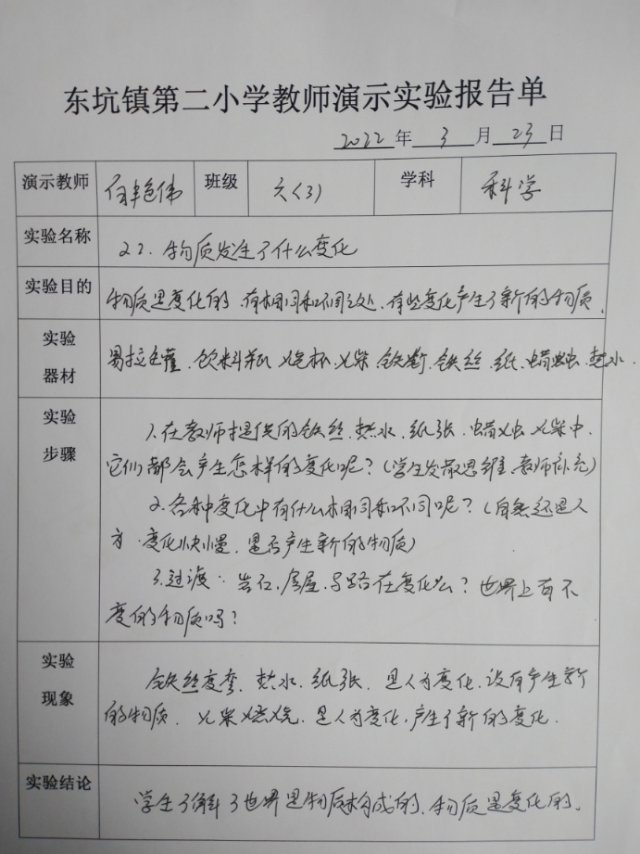 东坑镇第二小学教师演示实验报告单
2022年3月23日
演示教师 班级 六(3) 学科 科学
实验名称 22.物质发生了什么变化
实验目的 物质是变化的.有相同和不同之处.有些变化产生了新的物质.
实验器材 易拉罐.饮料瓶.烧杯.火柴.铁钉.铁丝.纸.蜡烛.热水.
实验步骤 1.在教师提供的铁丝.热水.纸张.蜡烛.火柴中.
它们都会产生怎样的变化呢?(学生发散思维.教师补充)
2.各种变化中有什么相同和不同呢?(自然还是人
为.变化快慢.是否产生新的物质)
3.过渡:岩石.房屋.马路在变化么?世界上有不
变的物质吗?
实验现象 铁丝变弯.热水.纸张.是人为变化.没有产生新
的物质.火柴燃烧.是人为变化.产生了新的变化.
实验结论 学生了解了世界是物质构成的.物质是变化的。